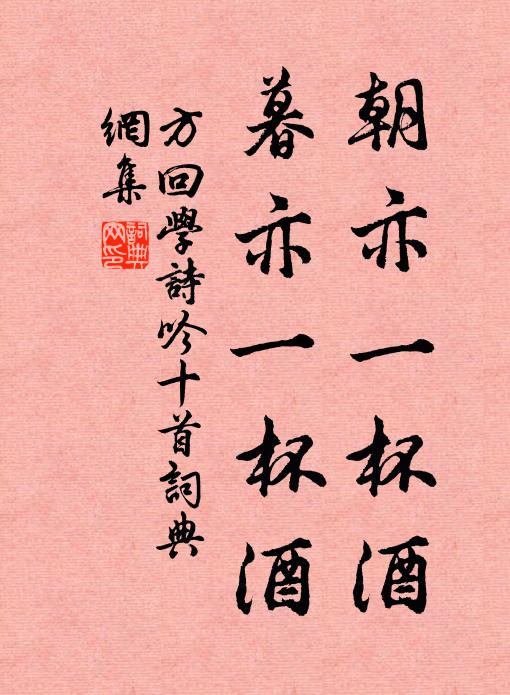 朝亦一杯酒
暮亦一杯酒
方回學詩吟十首詞典
網集
詞典
网印